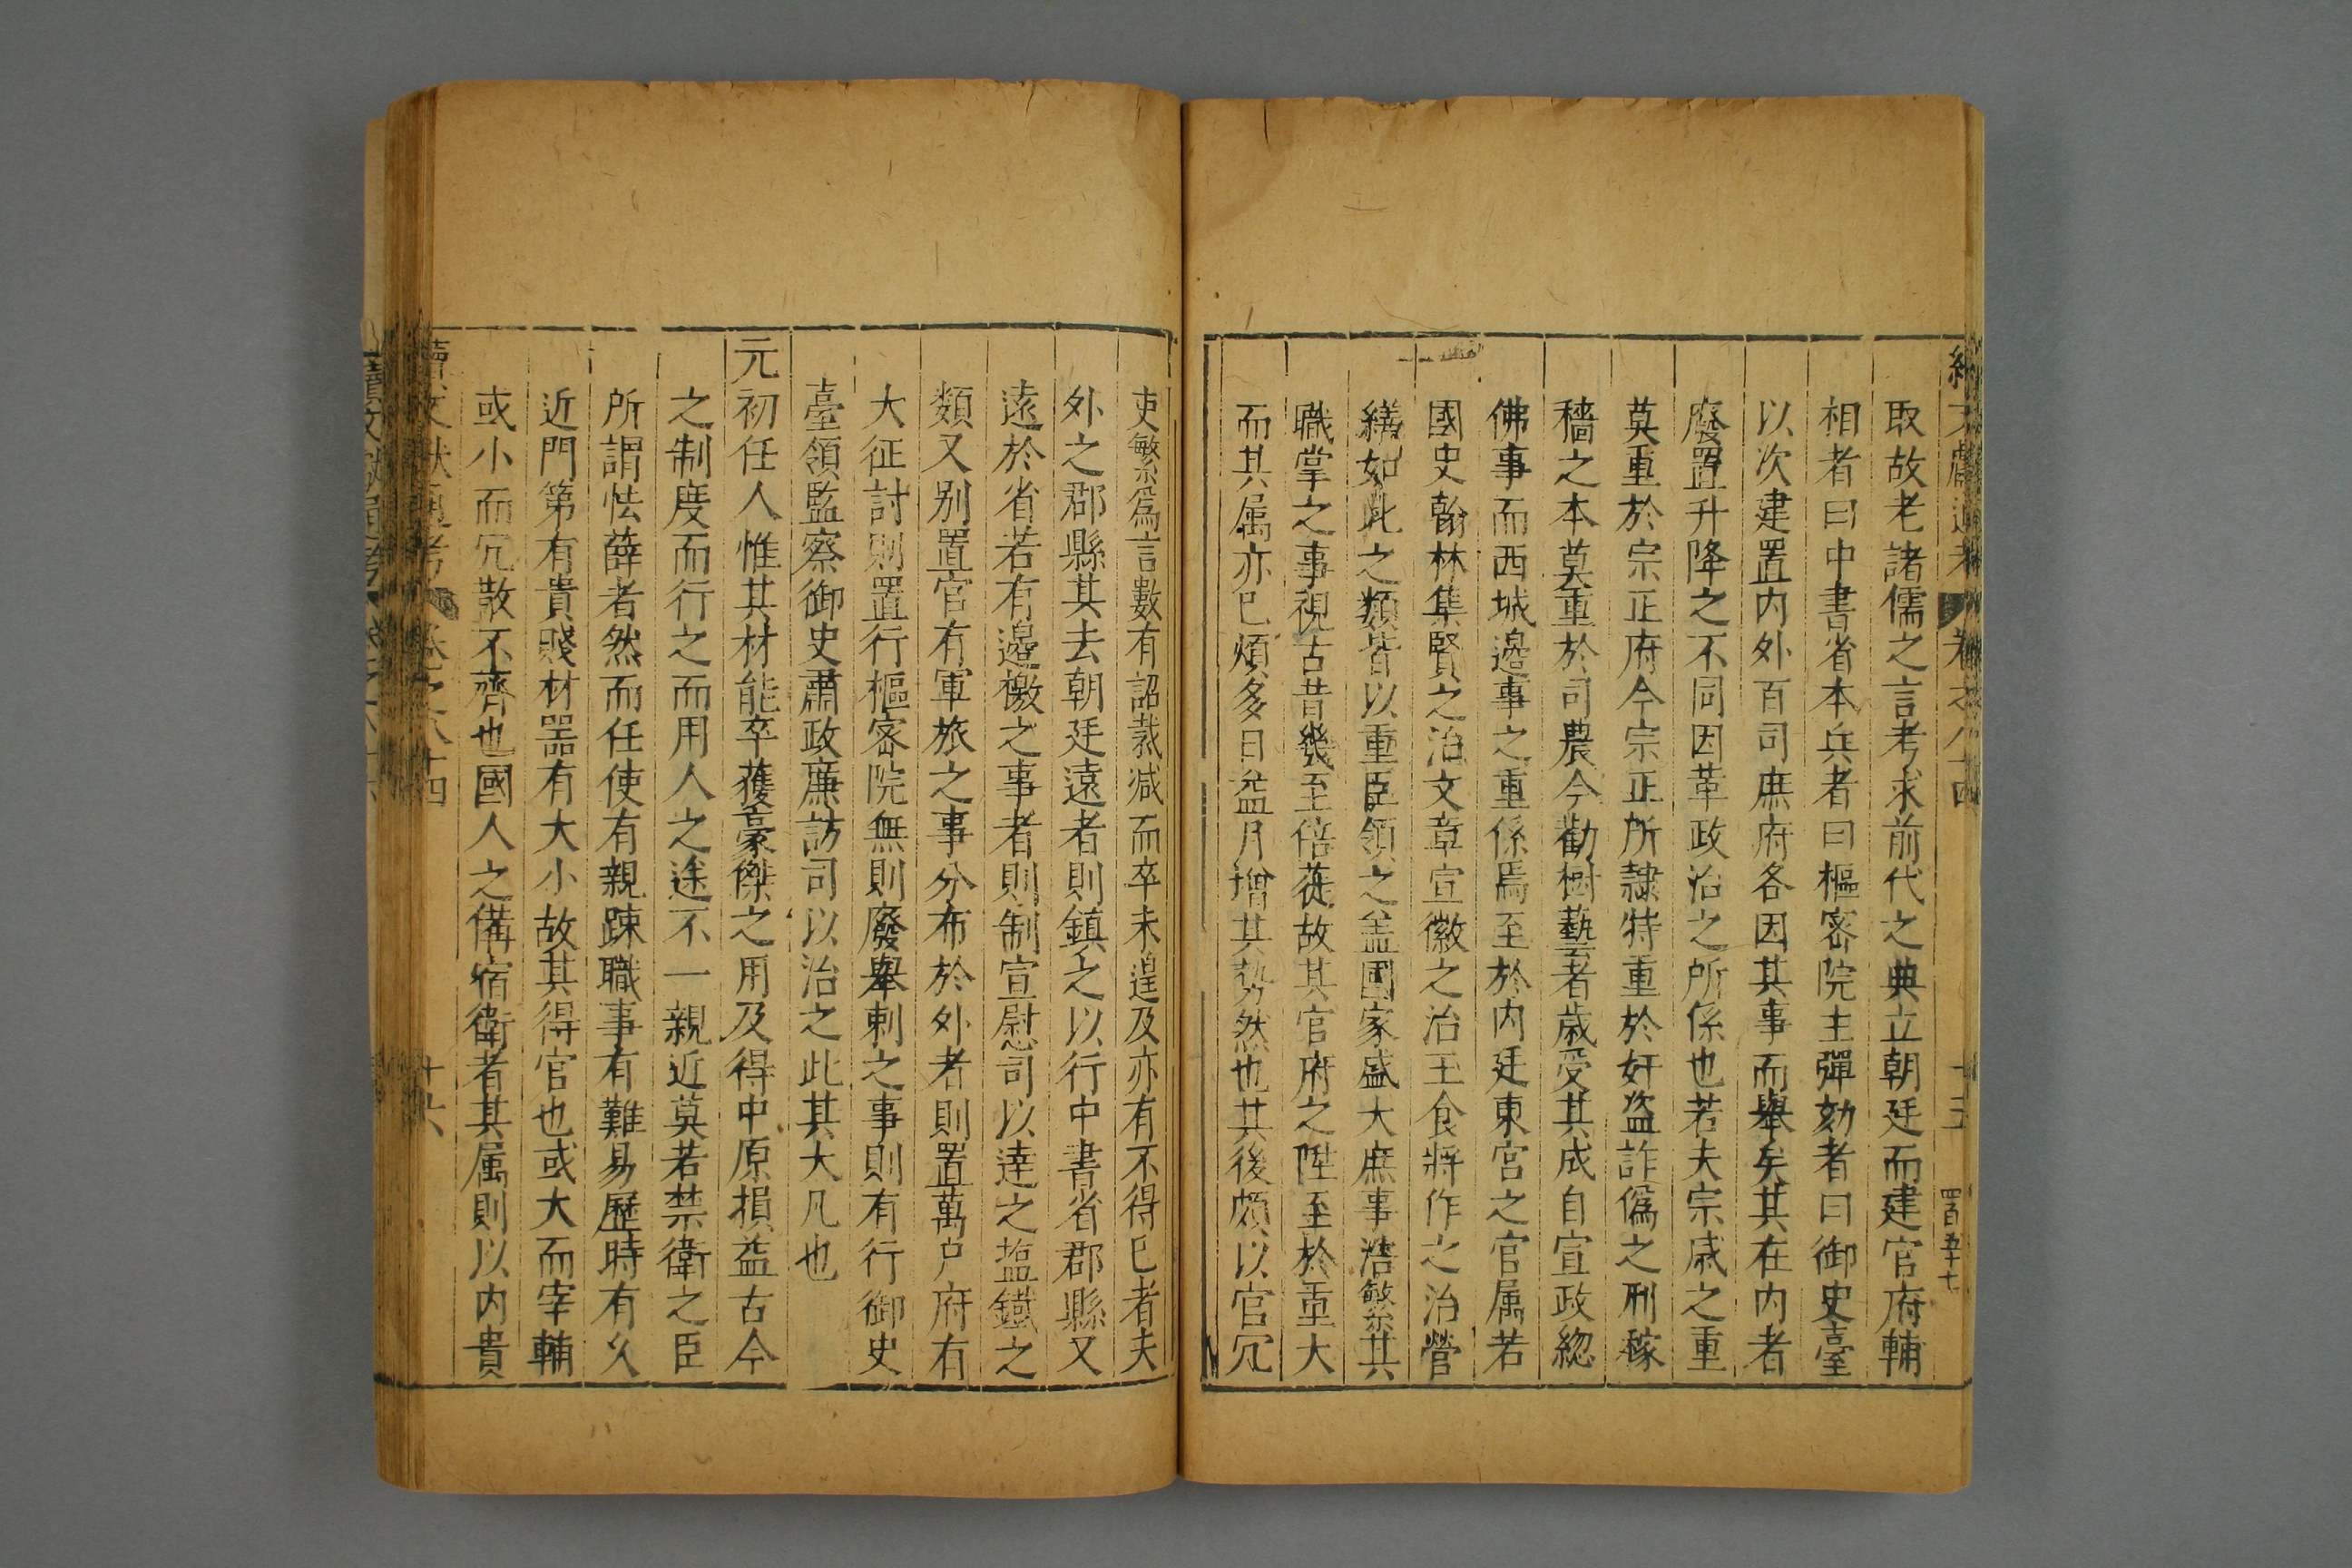 取故老諸儒之言考求前代之典立朝廷而建官府輔
相者曰中書省本兵者曰樞密院主彈劾者曰御史臺
以次建置内外百司庶府各因其事而舉矣其在内者
廢置升降之不同因革政治之所係也若夫宗戚之重
莫重於宗正府今宗正所隷特重於奸盗詐僞之刑稼
穡之本莫重於司農今勸樹藝者歲受其成自宣政緫
佛事而西城邉事之重係焉至於内廷東宮之官属若
國史翰林集賢之治文章宣徽之治玉食將作之治營
繕如此之類皆以重臣領之盖國家盛大庶事浩繁其
職掌之事視古昔幾至倍蓰故其官府之陞至於重大
而其属亦巳煩多日益月增其勢然也其後頗以官冗
吏繁爲言數有詔裁减而卒未遑及亦有不得巳者夫
外之郡縣其去朝廷遠者則鎮之以行中書省郡縣又
遠於省若有邉徼之事者則制宣慰司以達之塩鐵之
類又别置官有軍旅之事分布於外者則置萬户府有
大征討則置行樞密院無則廢舉刺之事則有行御史
臺領監察御史肅政廉訪司以治之此其大凡也
元初任人惟其材能卒獲豪傑之用及得中原損益古今
之制度而行之而用人之途不一親近莫若禁衛之臣
所謂怯薛者然而任使有親踈職事有難易歷時有久
近門第有貴賤材噐有大小故其得官也或大而宰輔
或小而冗散不齊也國人之備宿衛者其属則以内貴